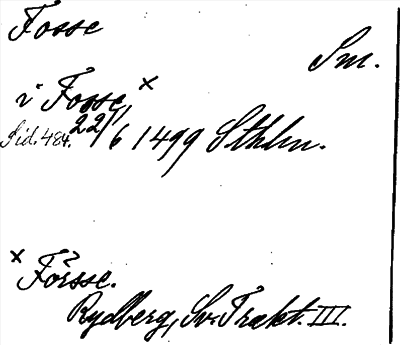 Fosse
Sm.
i Fosse, x
Sid. 484. 22/6 1499 Sthlm.
x Försse.
Rydberg, Sv. Trakt. III.